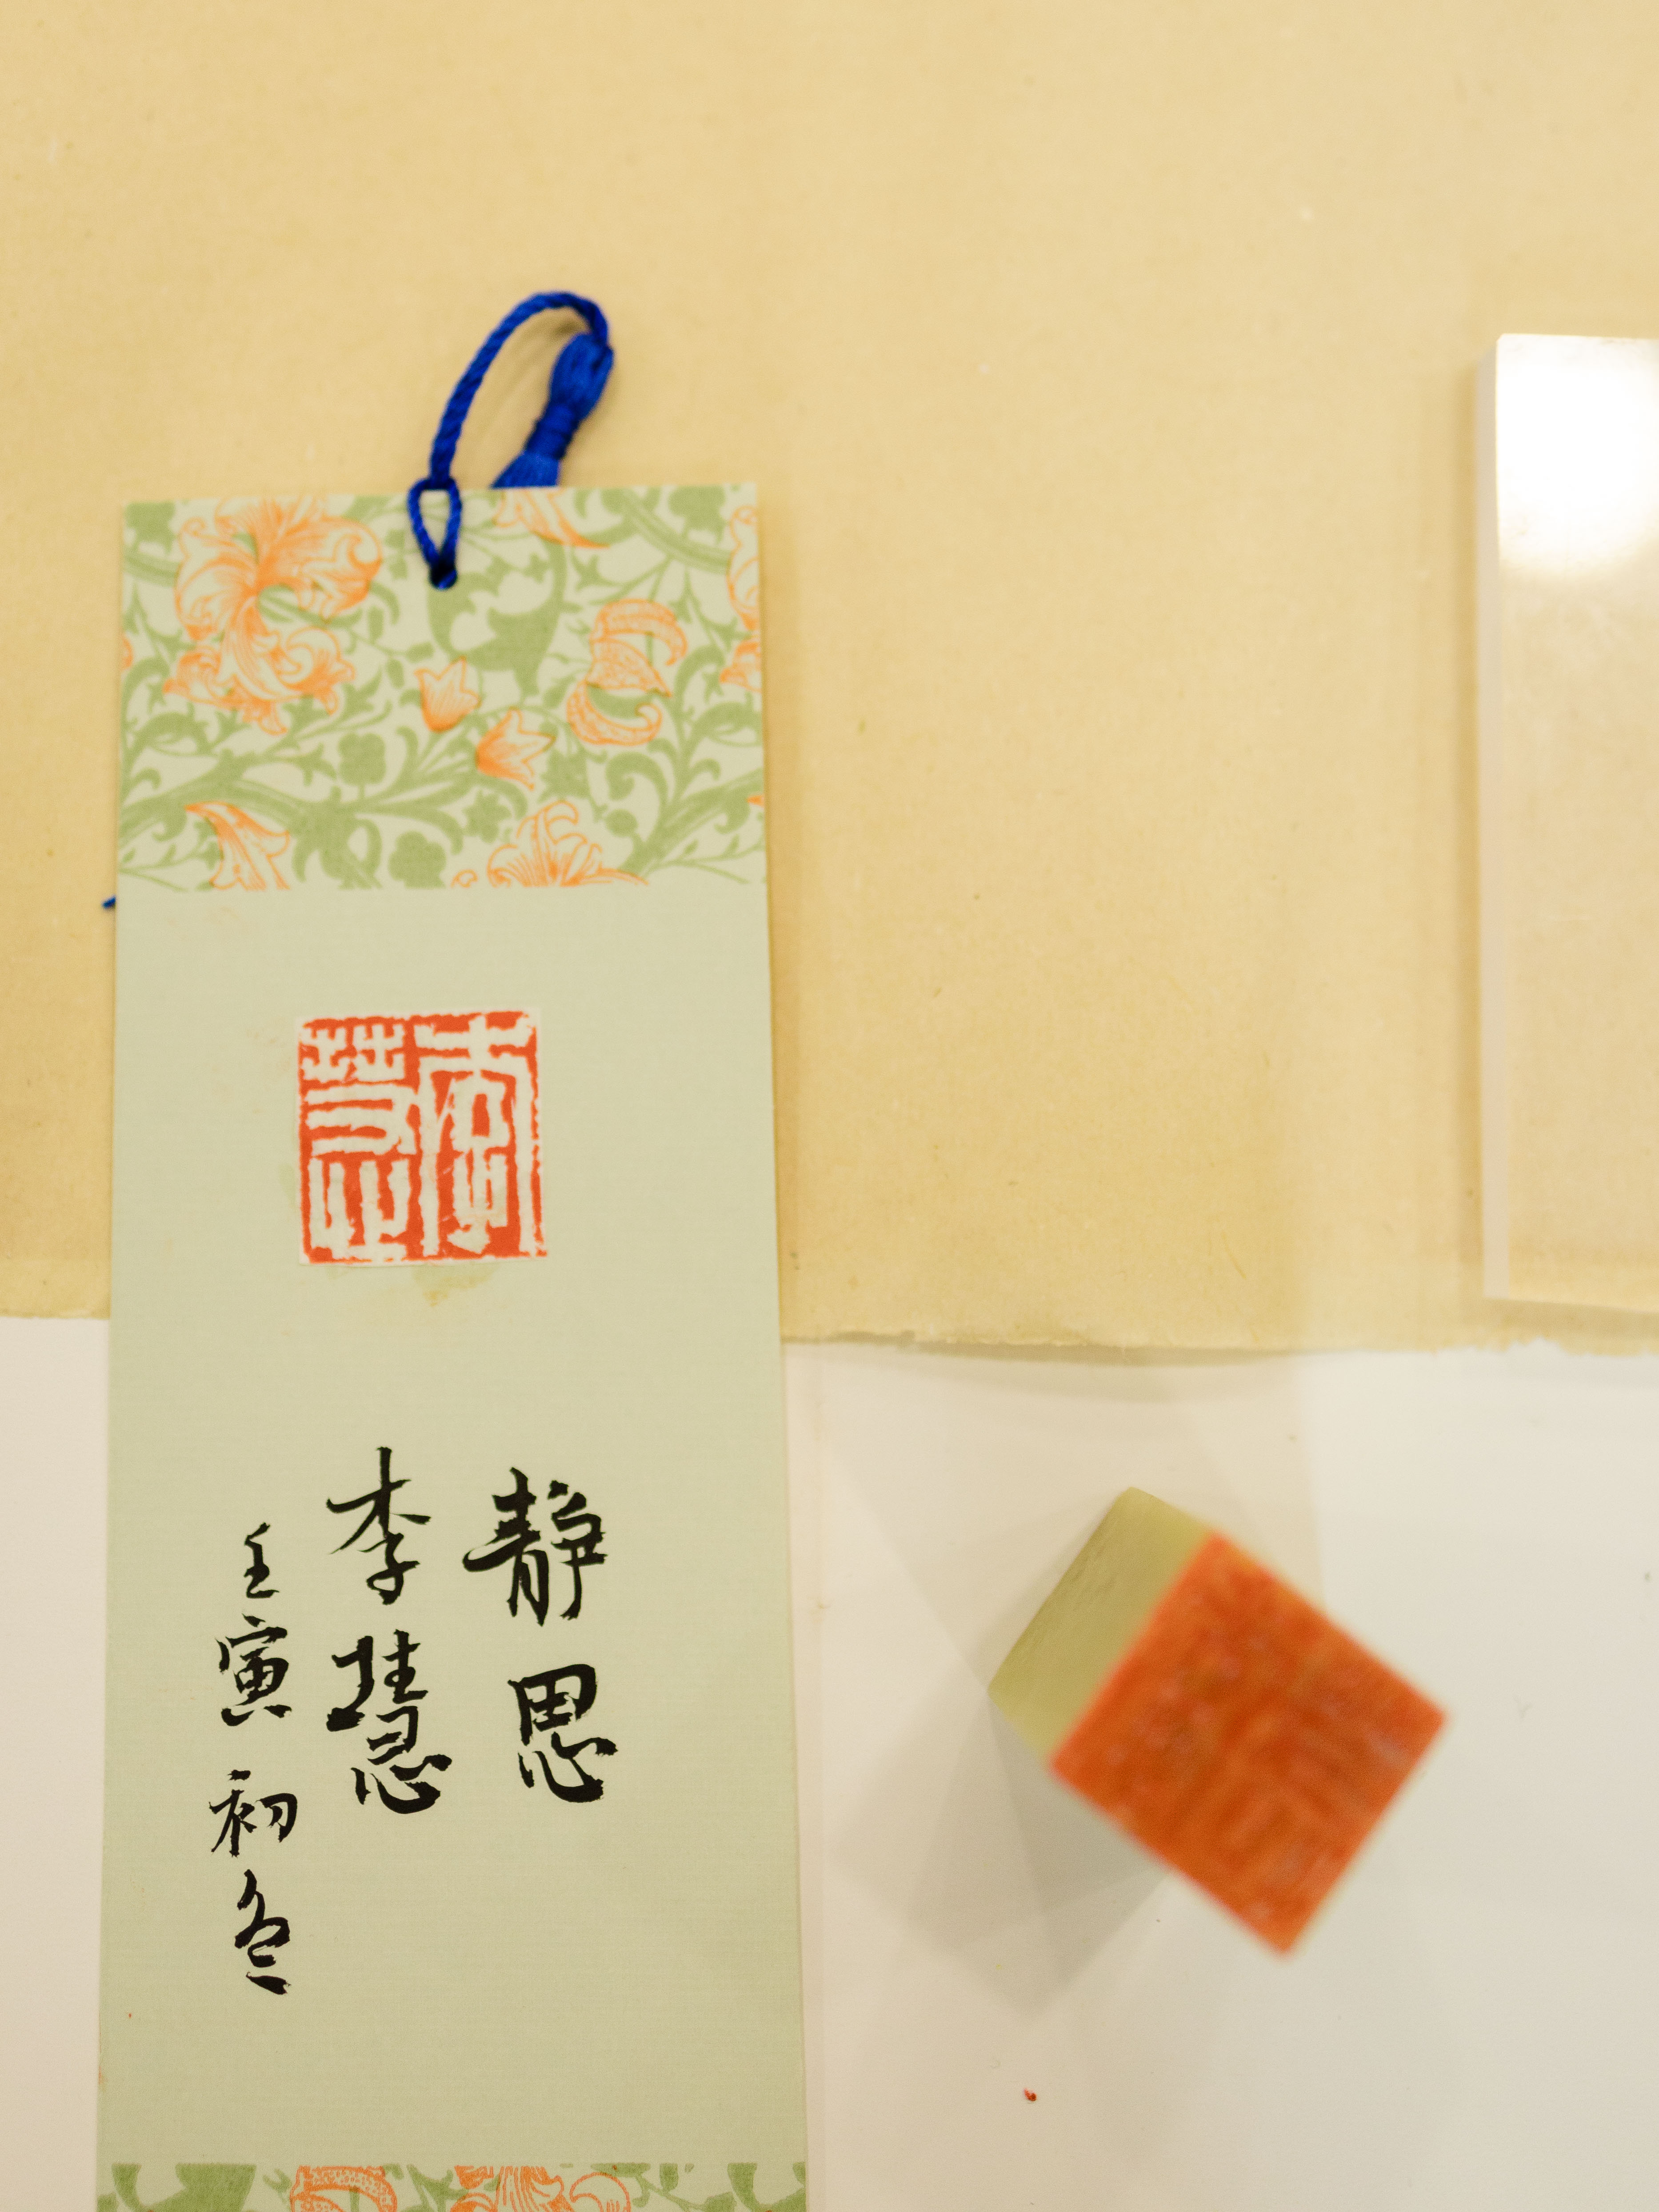 静思
李慧
壬寅初冬